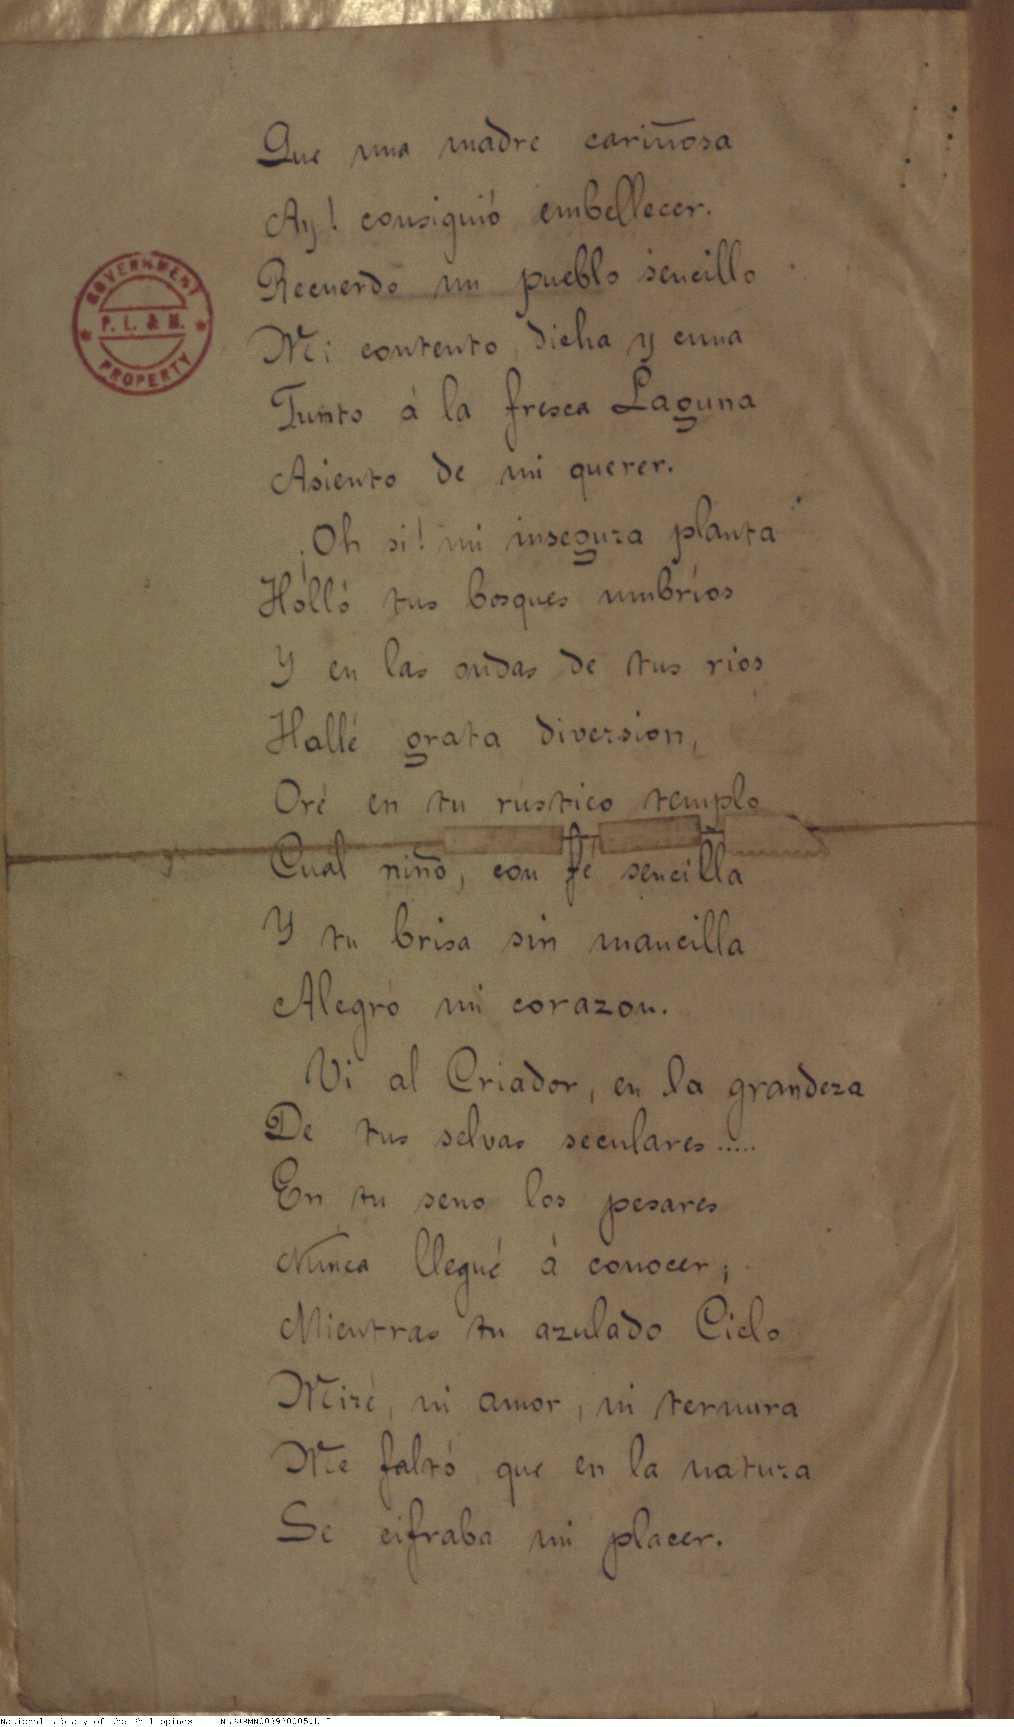 Que una madre cariñosa
Ay! consiguió embellecer.
Recuerdo un pueblo sencillo
Mi contento, dicha y cuna
Junto á la fresca Laguna
Asiento de mi querer.
¡Oh si! mi insegura planta
Holló tus bosques umbríos
Y en las ondas de tus rios
Hallé grata diversion,
Oré en tu rústico templo
Cual niño, con fé sencilla
Y tu brisa sin mancilla
Alegró mi corazon.
Vi al Criador, en la grandeza
De tus selvas seculares.....
En tu seno los pesares
Nunca llegué á conocer;
Mientras tu azulado Cielo
Miré, ni amor, ni ternura
Me faltó, que en la natura
Se cifraba mi placer.
GOVERNMENT
P. L. & M.
PROPERTY
National Library of the Philippines